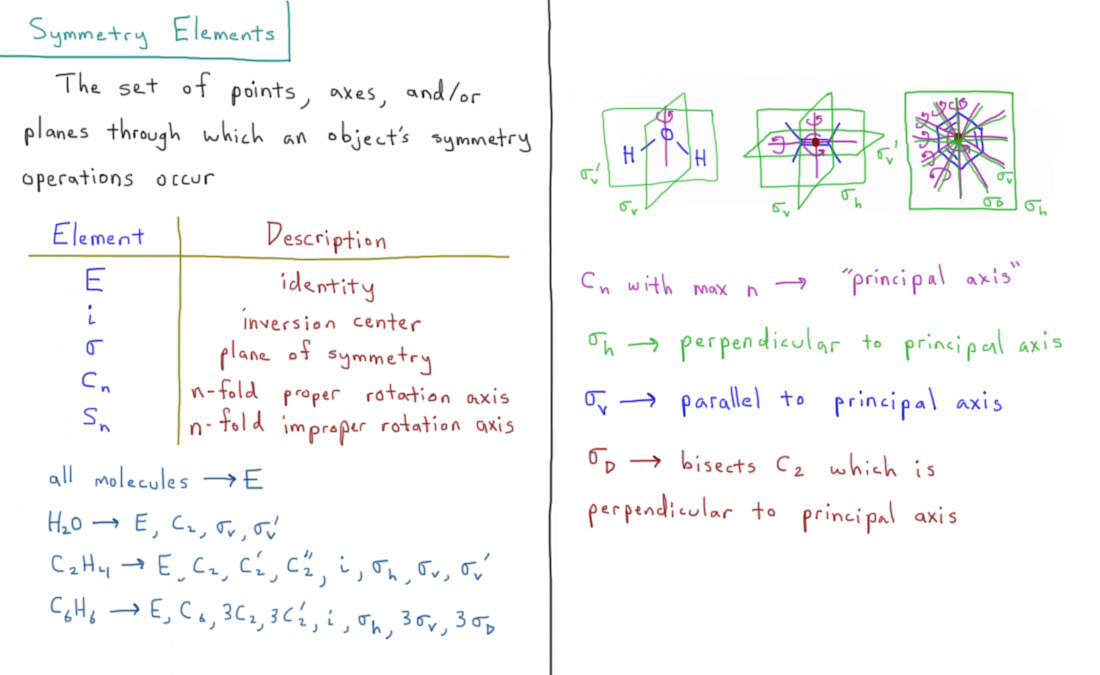 Symmetry Elements
The set of points, axes, and/or
planes through which an object's symmetry
operations occur
Element Description
E identity
i inversion center
σ plane of symmetry
Cₙ n-fold proper rotation axis
Sₙ n-fold improper rotation axis
all molecules → E
H₂O → E, C₂, σᵥ, σᵥ'
C₂H₄ → E, C₂, C₂', C₂'', i, σₕ, σᵥ, σᵥ'
C₆H₆ → E, C₆, 3C₂, 3C₂', i, σₕ, 3σᵥ, 3σ_D
O
H H
σᵥ'
σᵥ
σᵥ'
σᵥ σₕ
σᵥ
σ_D σₕ
Cₙ with max n → "principal axis"
σₕ → perpendicular to principal axis
σᵥ → parallel to principal axis
σ_D → bisects C₂ which is
perpendicular to principal axis